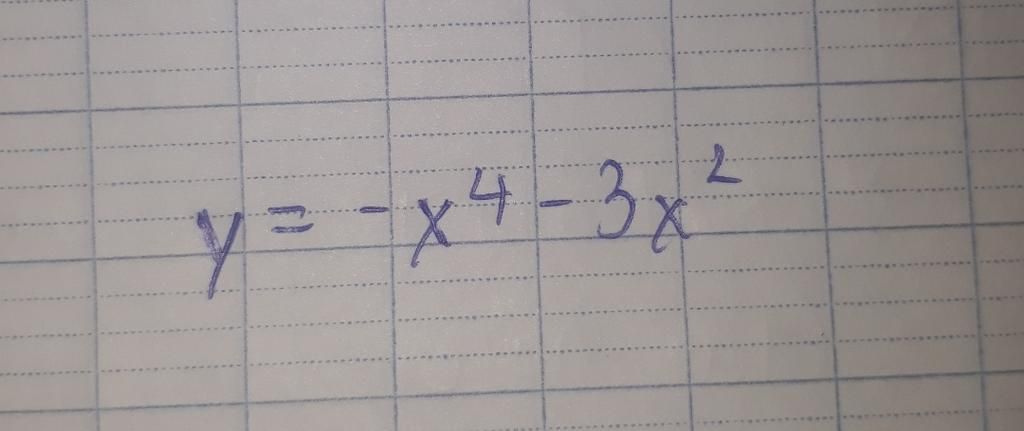 y = -x⁴ - 3x²